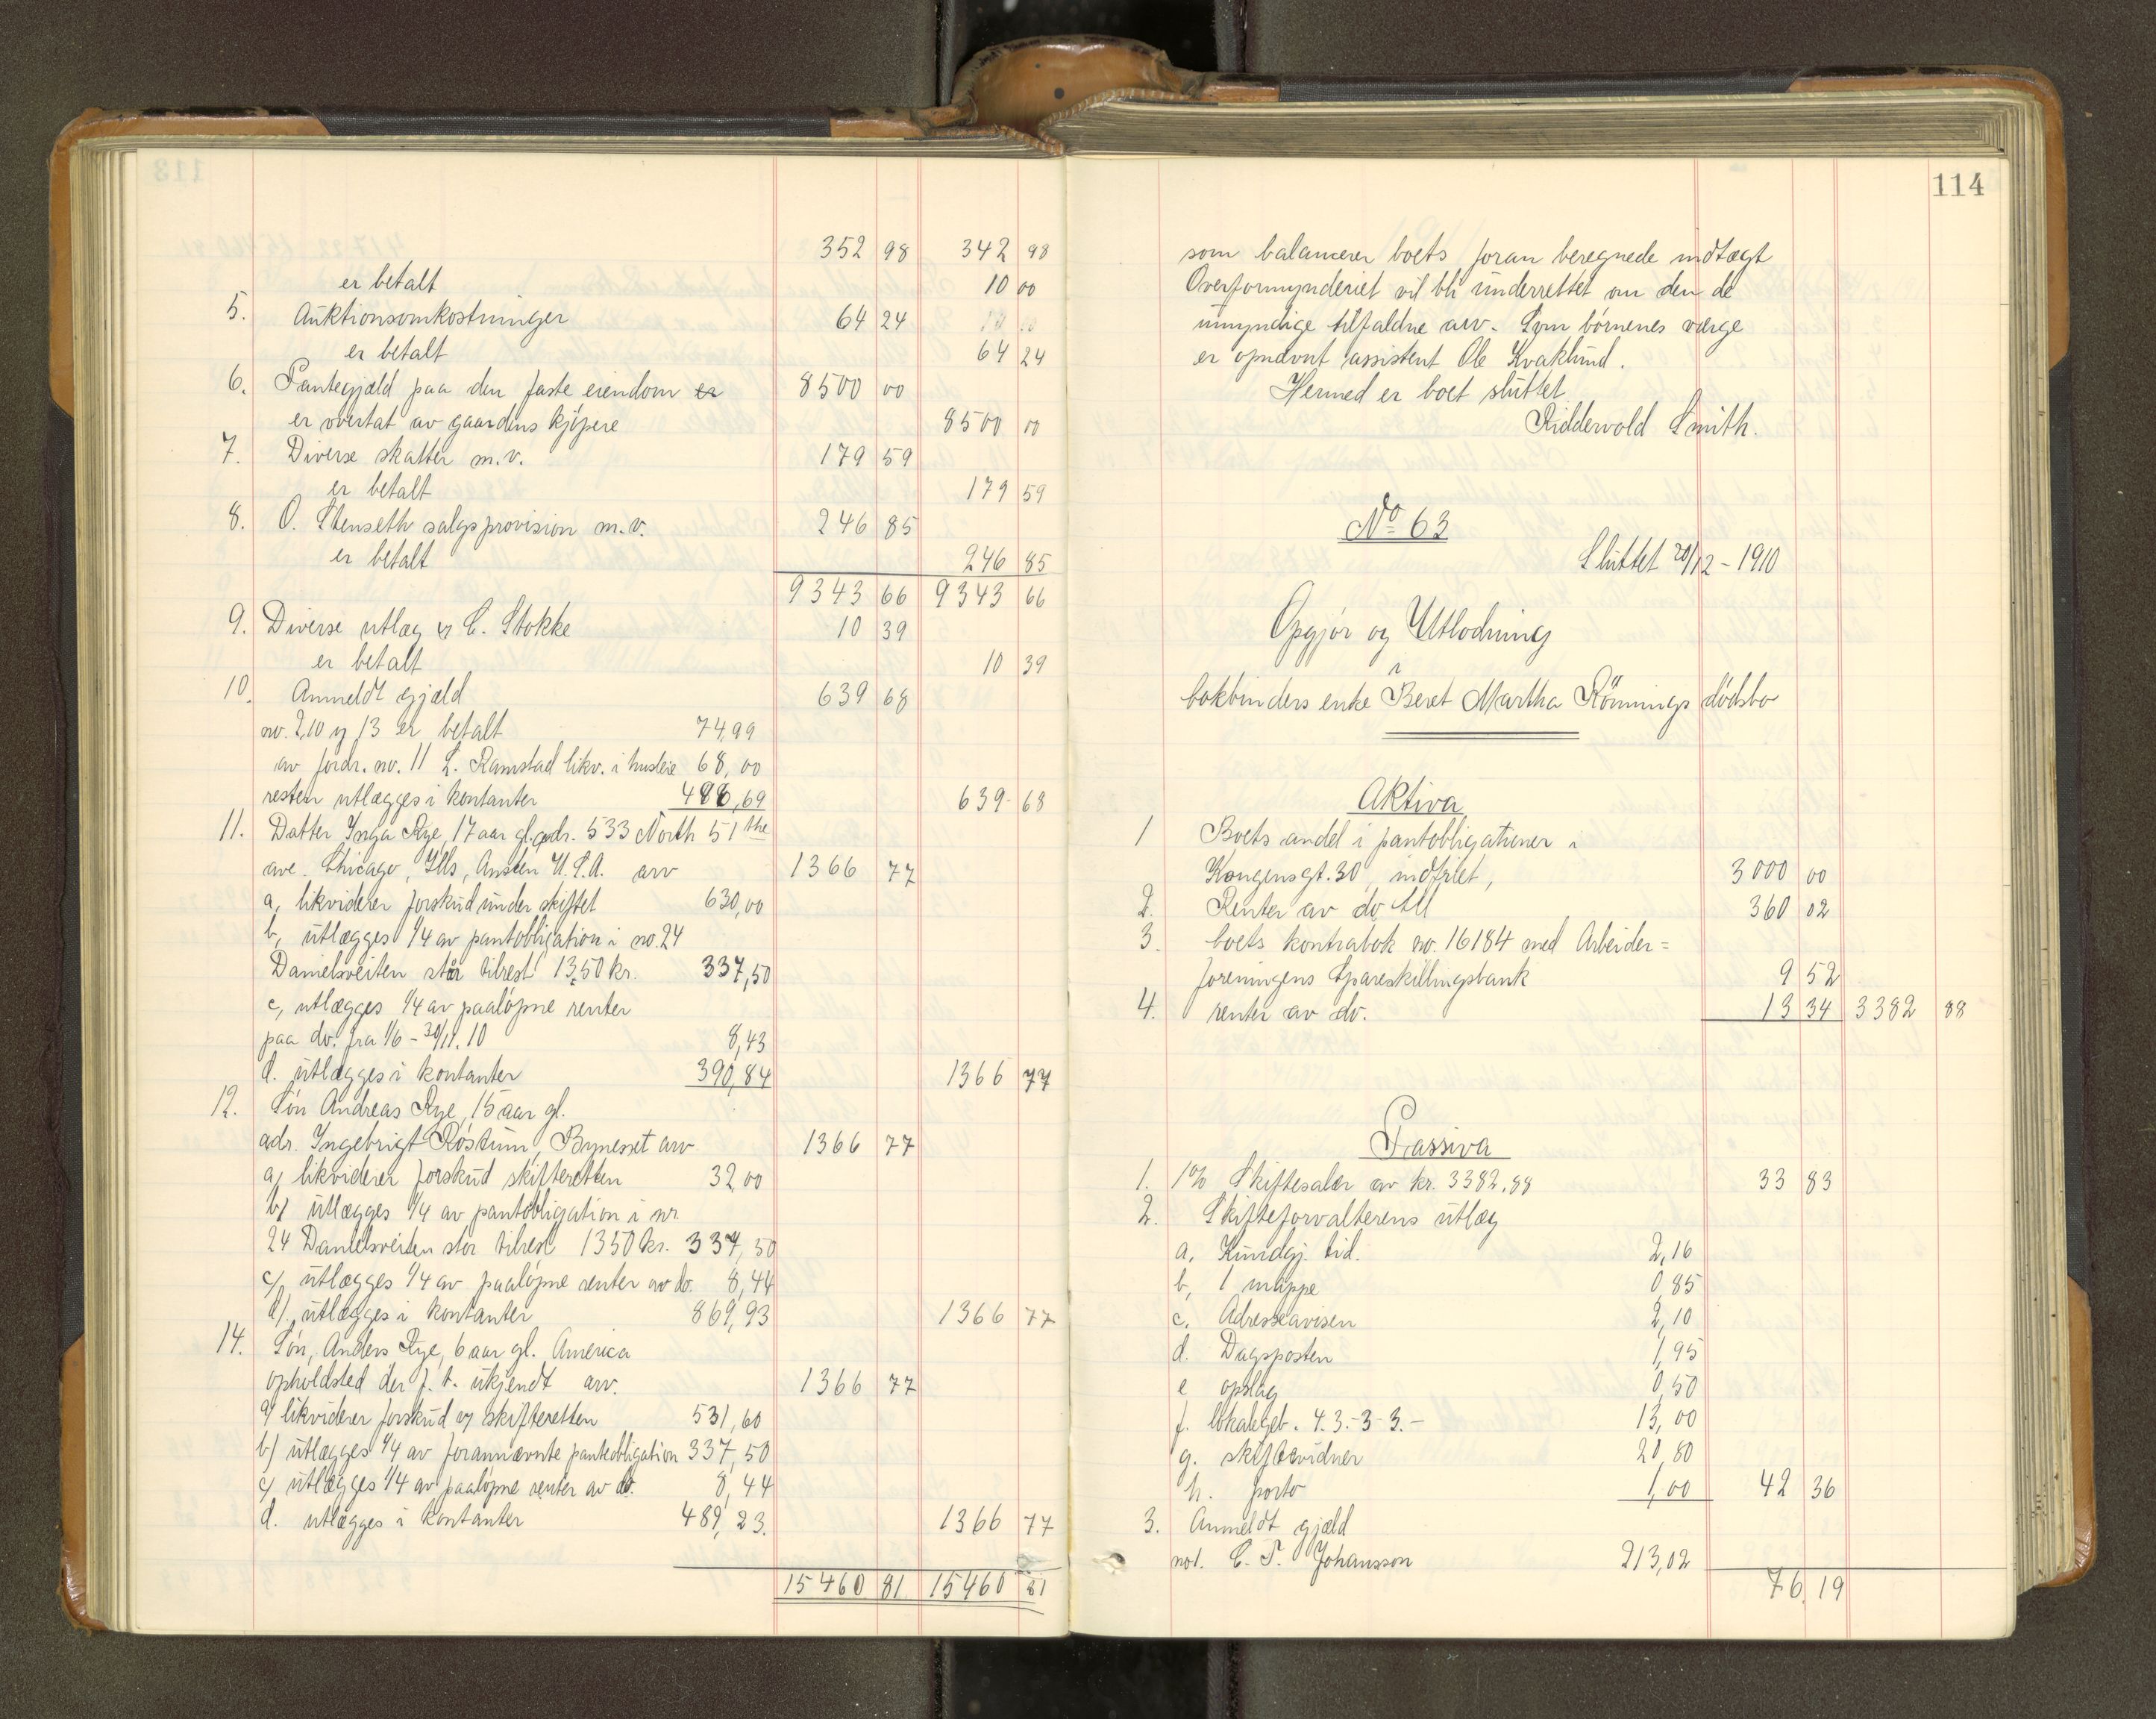 352 98 342 98
er betalt 10 00
5. Auktionsomkostninger 64 24
er betalt 64 24
6. Pantegjæld paa den faste eiendom er 8500 00
er overtat av gaardens kjøpere 8500 00
7. Diverse skatter m.v. 179 59
er betalt 179 59
8. O. Stenseth salgsprovision m.v. 246 85
er betalt 246 85
9343 66 9343 66
9. Diverse utlæg v C. Stokke 10 39
er betalt 10 39
10. Anmeldt gjæld 639 68
no. 2,10 og 13 er betalt 74,99
av fordr. no. 11 L. Ramstad likv. i husleie 68,00
resten utlægges i kontanter 486,69 639 68
11. Datter Inga Rye, 17 aar gl. adr. 533 North 51 the
ave. Chicago, Ills, Austen U.S.A. arv 1366 77
a, likviderer forskud under skiftet 630,00
b, utlægges 1/4 av pantobligation i no. 24
Danielsveiten står tilrest 1350 kr. 337,50
c, utlægges 1/4 av paaløpne renter
paa do. fra 1/6 - 30/11. 10 8,43
d. utlægges i kontanter 390,84 1366 77
12. Søn Andreas Rye, 15 aar gl.
adr. Ingebrigt Røstum, Bynesset arv 1366 77
a, likviderer forskud skifteretten 32,00
b/ utlægges 1/4 av pantobligation i nr.
24 Danielsveiten stor tilrest 1350 kr. 337,50
c/, utlægges 1/4 av paaløpne renter av do. 8,44
d/, utlægges i kontanter 869,93 1366 77
14. Søn, Anders Rye, 6 aar gl. America
opholdsted der f. t. ukjendt arv. 1366 77
a/ likviderer forskud v skifteretten 531,60
b/ utlægges 1/4 av forannævnte panteobligation 337,50
c/ utlægges 1/4 av paaløpne renter av do. 8,44
d. utlægges i kontanter 489,23. 1366 77
15460 81 15460 81
114
som balancerer boets foran beregnede indtægt
Overformynderiet vil bli underrettet om den de
umyndige tilfaldne arv. Som børnenes værge
er opnævnt assistent Ole Kvaklund.
Hermed er boet sluttet
Ridderwold Smith.
No 63
Sluttet 20/12 - 1910
Opgjør og Utlodning
i
bokbinders enke Beret Martha Rönnings dödsbo
Aktiva
1 Boets andel i pantobligationer i
Kongensgt. 30, indfriet, 3000 00
2. Renter av do till 360 02
3. boets kontrabok no. 16184 med Arbeider=
foreningens Spareskillingsbank 9 52
4. renter av do. 13 34 3382 88
Passiva
1. 1% Skiftesalær av kr. 3382.88 33 83
2. Skifteforvalterens utlæg
a, Kundgj. tid. 2,16
b, 1 mappe 0,85
c. Adresseavisen 2,10
d. Dagsposten 1,95
e opslag 0,50
f. lokalegeb. 4.3.-3-3.- 13,00
g. skiftevidner 20,80
h. porto 1,00 42 36
3. Anmeldt gjæld
no 1. C. T. Johansson 213,02
76,19